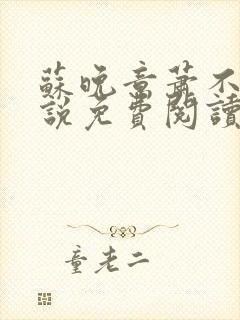 蘇晚章蕭不
說免費閱讀
童老二